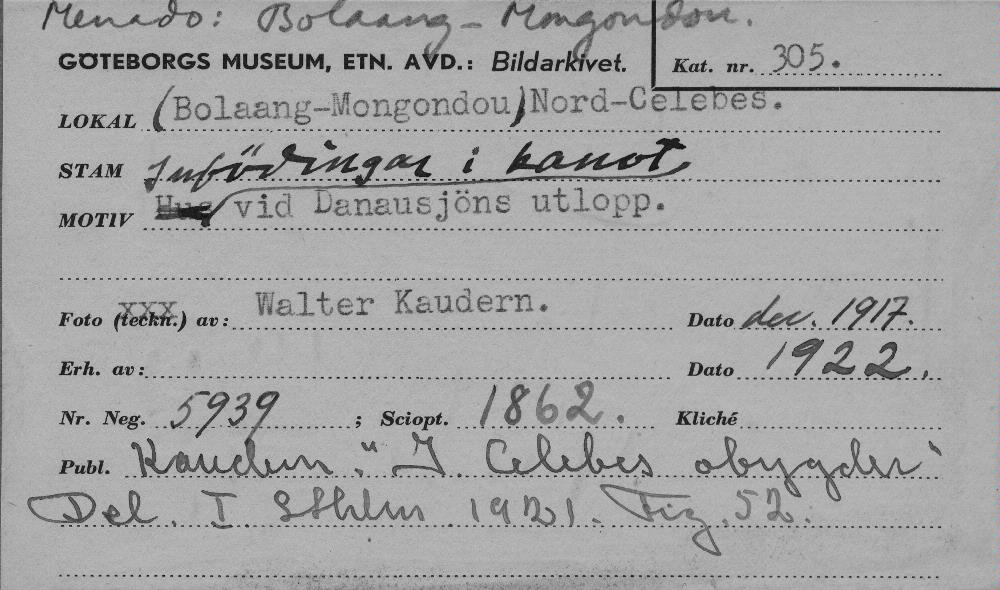 Menado: Bolaang-Mongondou.
GÖTEBORGS MUSEUM, ETN. AVD.: Bildarkivet.
Kat. nr. 305.
LOKAL (Bolaang-Mongondou) Nord-Celebes.
STAM Infödingar i kanot
MOTIV Hus vid Danausjöns utlopp.
Foto (teckn.) av: Walter Kaudern. Dato dec. 1917.
Erh. av: Dato 1922.
Nr. Neg. 5939 ; Sciopt. 1862. Kliché
Publ. Kaudern. "I Celebes obygder"
Del. I Sthlm 1921. Fig. 52.